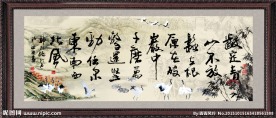 咬定青
山不放
鬆立根
原在破
巖中
千磨萬
擊還堅
勁任尔
東西南
北風
昵图网 www.nipic.com